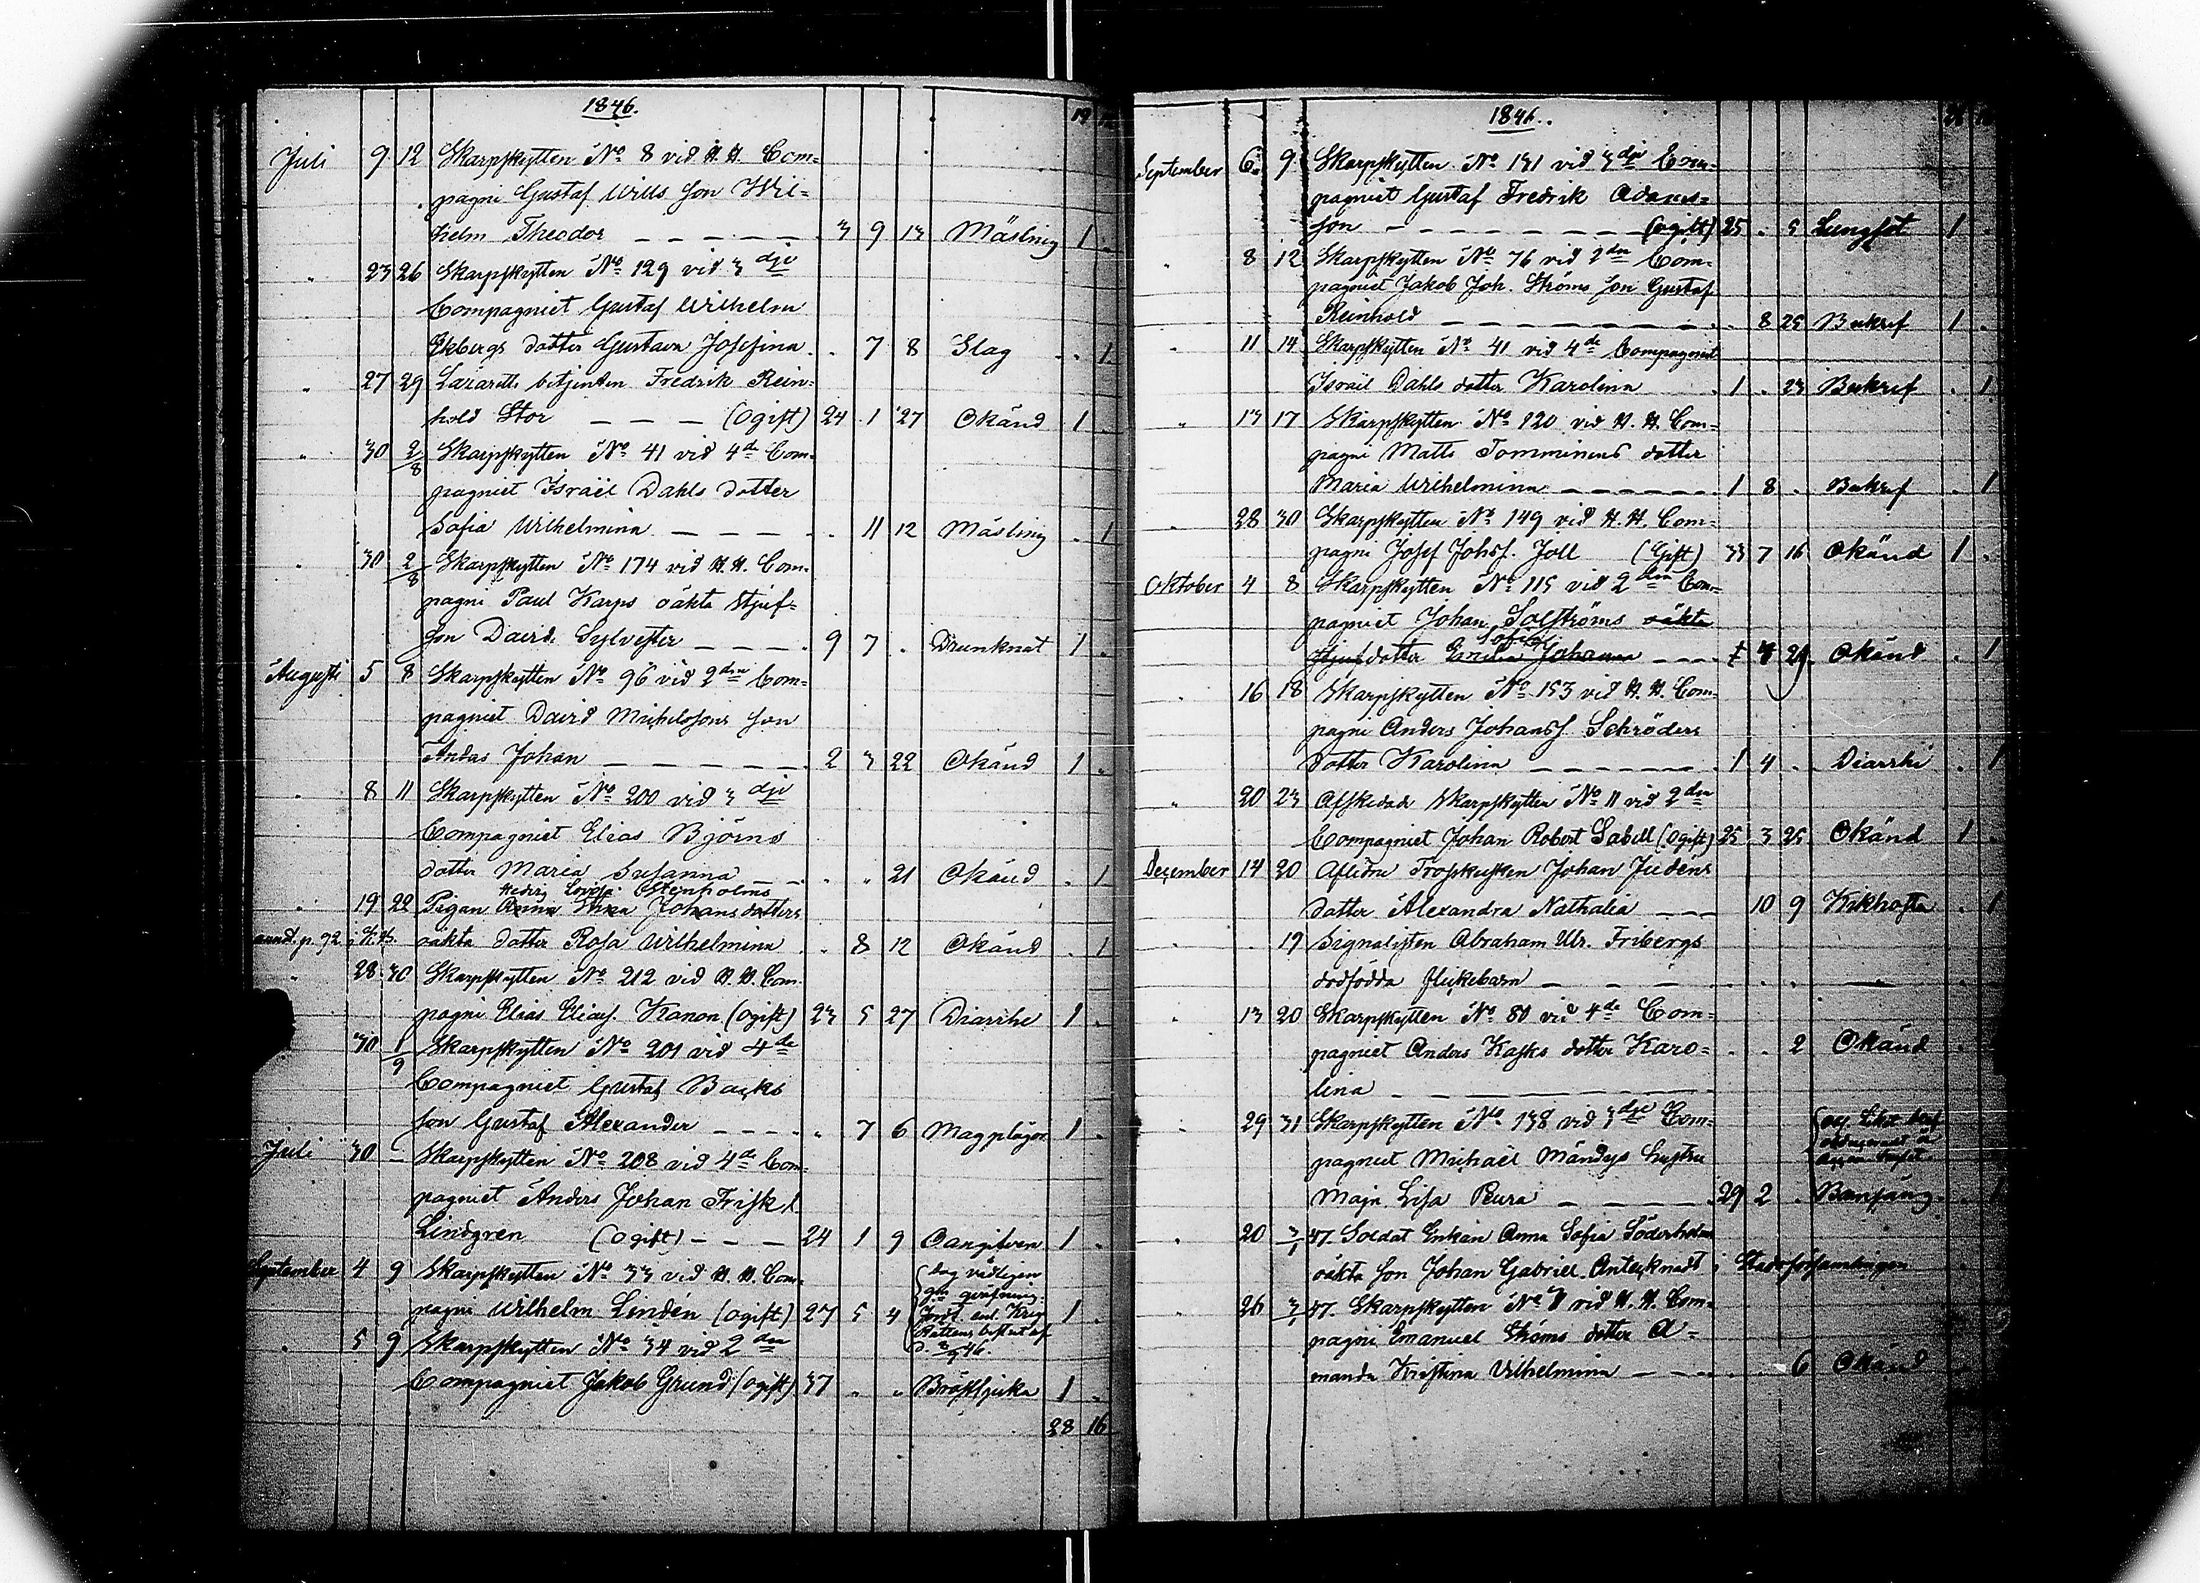 1846.
19
Juli 9 12 Skarpskytten No 8 vid H. H. Com=
pagni Gustaf Wills son Wil=
helm Theodor — — — — — 3 9 13 Mäsling 1 .
" 23 26 Skarpskytten No 129 vid 3dje
Compagniet Gustaf Wilhelm
Ekbergs dotter Gustava Josefina . . 7 8 Slag . 1
" 27 29 Lazaretts betjenten Fredrik Rein=
hold Stor — — — (Ogift) 24 1 27 Okänd 1 .
" 30 2/8 Skarpskytten No 41 vid 4de Com=
pagniet Israël Dahls dotter
Sofia Wilhelmina — — — — . 11 12 Mäsling . 1
" 30 2/8 Skarpskytten No 174 vid H. H. Com=
pagni Paul Karps oäkta stjuf=
son David Sylvester — — — — 9 7 . Drunknat 1 .
Augusti 5 8 Skarpskytten No 96 vid 2dra Com=
pagniet David Michelssons son
Andas Johan — — — — — 2 3 22 Okänd 1 .
" 8 11 Skarpskytten No 200 vid 3dje
Compagniet Elias Björns
dotter Maria Susanna — — . . 21 Okänd . 1
Hedvig Lovisa Östenholms
" 19 22 Pigan Anna Stina Johansdotters
annot. p. 92 i K.B. oäkta dotter Rosa Wilhelmina . . 8 12 Okänd . 1
" 28 30 Skarpskytten No 212 vid H. H. Com=
pagni Elias Eliass. Kanon (Ogift) 23 5 27 Diarrhe 1 .
30 1/9 Skarpskytten No 201 vid 4de
Compagniet Gustaf Backs
son Gustaf Alexander — — — . 7 6 Magplågor 1 .
Juli 30 — Skarpskytten No 208 vid 4de Com=
pagniet Anders Johan Frisk l.
Lindgren (Ogift) — — — 24 1 9 Oangifven 1 .
September 4 9 Skarpskytten No 33 vid H. H. Com=
pagni Wilhelm Lindén (Ogift) 27 5 4 1 .
" 5 9 Skarpskytten No 34 vid 2dra
Compagniet Jakob Grund (Ogift) 37 . . Bröstsjuka 1 .
28 16
1846.
September 6 9 Skarpskytten No 131 vid 3dje Com=
pagniet Gustaf Fredrik Adams=
son — — — — — — — (Ogift) 25 . 5 Lungsot 1 .
" 8 12 Skarpskytten No 76 vid 2dra Com=
pagniet Jakob Joh. Ströms son Gustaf
Reinhold — — — — — — — . 8 25 Bukref 1 .
" 11 14 Skarpskytten No 41 vid 4de Compagniet
Israël Dahls dotter Karolina 1 . 23 Bukref . 1
" 13 17 Skarpskytten No 120 vid H. H. Com=
pagni Matts Tomminens dotter
Maria Wilhelmina — — — — — 1 8 . Bukref . 1
" 28 30 Skarpskytten No 149 vid H. H. Com=
pagni Josef Johss. Joll (Gift) 33 7 16 Okänd 1 .
Oktober 4 8 Skarpskytten No 115 vid 2dra Com=
pagniet Johan Solströms oäkta
Sofia
stjufdotter Emilia Johanna — — — Okänd . 1
" 16 18 Skarpskytten No 153 vid H. H. Com=
pagni Anders Johanss. Schröders
dotter Karolina — — — — — — 1 4 . Diarrhé . 1
" 20 23 Afskedade Skarpskytten No 11 vid 2dra
Compagniet Johan Robert Sabell (Ogift) 25 3 25 Okänd 1 .
December 14 20 Aflidne Trosskusken Johan Judéns
dotter Alexandra Nathalia — — 10 9 Kikhosta . 1
" . 19 Signalisten Abraham Ulr. Fribergs
dödfödda flickebarn — — — — . . . —
" 13 20 Skarpskytten No 80 vid 4de Com=
pagniet Anders Kasks dotter Karo= . . 2 Okänd
lina — — — — — — — —
" 29 31 Skarpskytten No 138 vid 3dje Com=
pagniet Michaël Mändys hustru
Maja Lisa Peura — — — — — 29 2 . Barnsäng . 1
" 20 3/1 47. Soldat Enkan Anna Sofia Söderholms
oäkta son Johan Gabriel. Antecknadt i Stadsförsamlingen
" 26 3/1 47. Skarpskytten No 8 vid H. H. Com=
pagni Emanuel Ströms dotter A=
manda Kristina Vilhelmina — — . . 6 Okänd